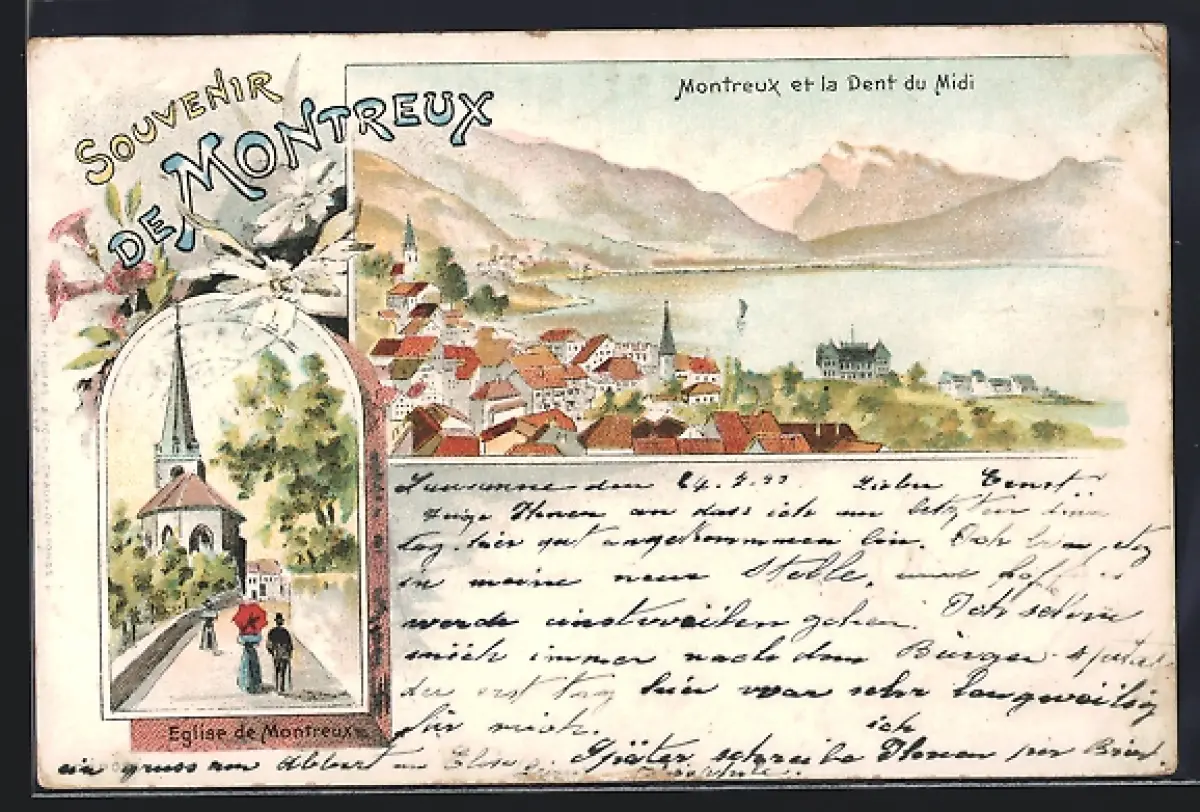 SOUVENIR
DE MONTREUX
Montreux et la Dent du Midi
Eglise de Montreux
Lausanne den 24. Lieber Ernst
Zeige Ihnen an dass ich am letzten
tag hier gut angekommen bin. Ich bin
in meine neue Stelle, und hoffe es
werde einstweilen gehen. Ich sehne
mich immer nach dem Bürger
der erst tag hier war sehr langweilig
für mich.
Später schreibe ich Ihnen per Brief.
ein gruss von